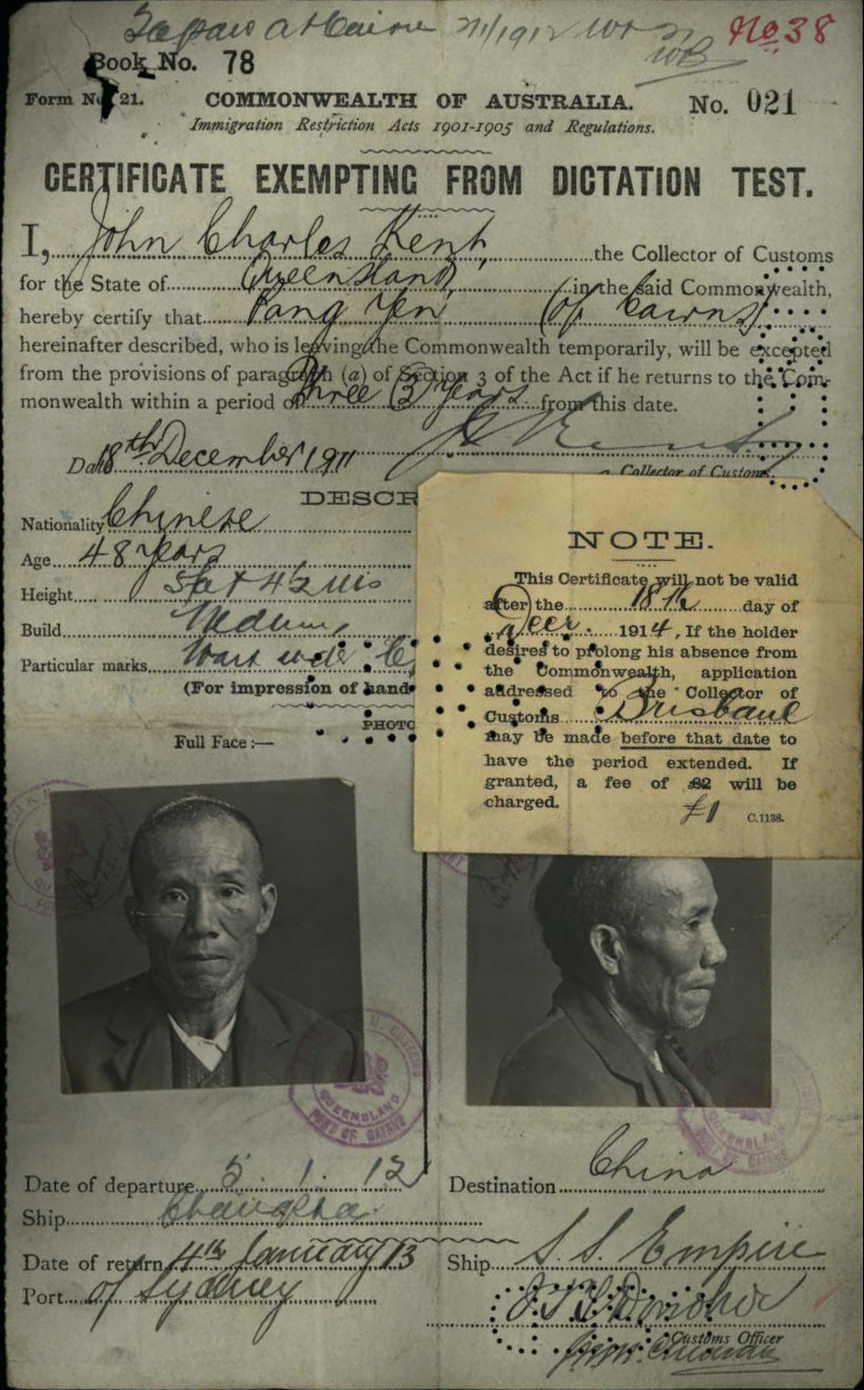 No 38
Book No. 78
Form No. 21. COMMONWEALTH OF AUSTRALIA. No. 021
Immigration Restriction Acts 1901-1905 and Regulations.
CERTIFICATE EXEMPTING FROM DICTATION TEST.
I, John Charles Kent, the Collector of Customs
for the State of Queensland, in the said Commonwealth,
hereby certify that Pang Yen (of Cairns)
hereinafter described, who is leaving the Commonwealth temporarily, will be excepted
from the provisions of paragraph (a) of Section 3 of the Act if he returns to the Com-
monwealth within a period of Three (3) years from this date.
Date 18th December 1911
Collector of Customs.
DESCR
Nationality Chinese
Age 48 years
Height
Build Medium
Particular marks Wart under
(For impression of hand
PHOTO
Full Face:—
NOTE.
This Certificate will not be valid
after the 18th day of
Decr. 1914, If the holder
desires to prolong his absence from
the Commonwealth, application
addressed to the Collector of
Customs Brisbane
may be made before that date to
have the period extended. If
granted, a fee of £2 will be
charged. £1 C.1138.
QUEENSLAND
PORT OF CAIRNS
Date of departure 5.1.12 Destination China
Ship Changsha
Date of return 4th January 13 Ship S.S. Empire
Port of Sydney
Customs Officer